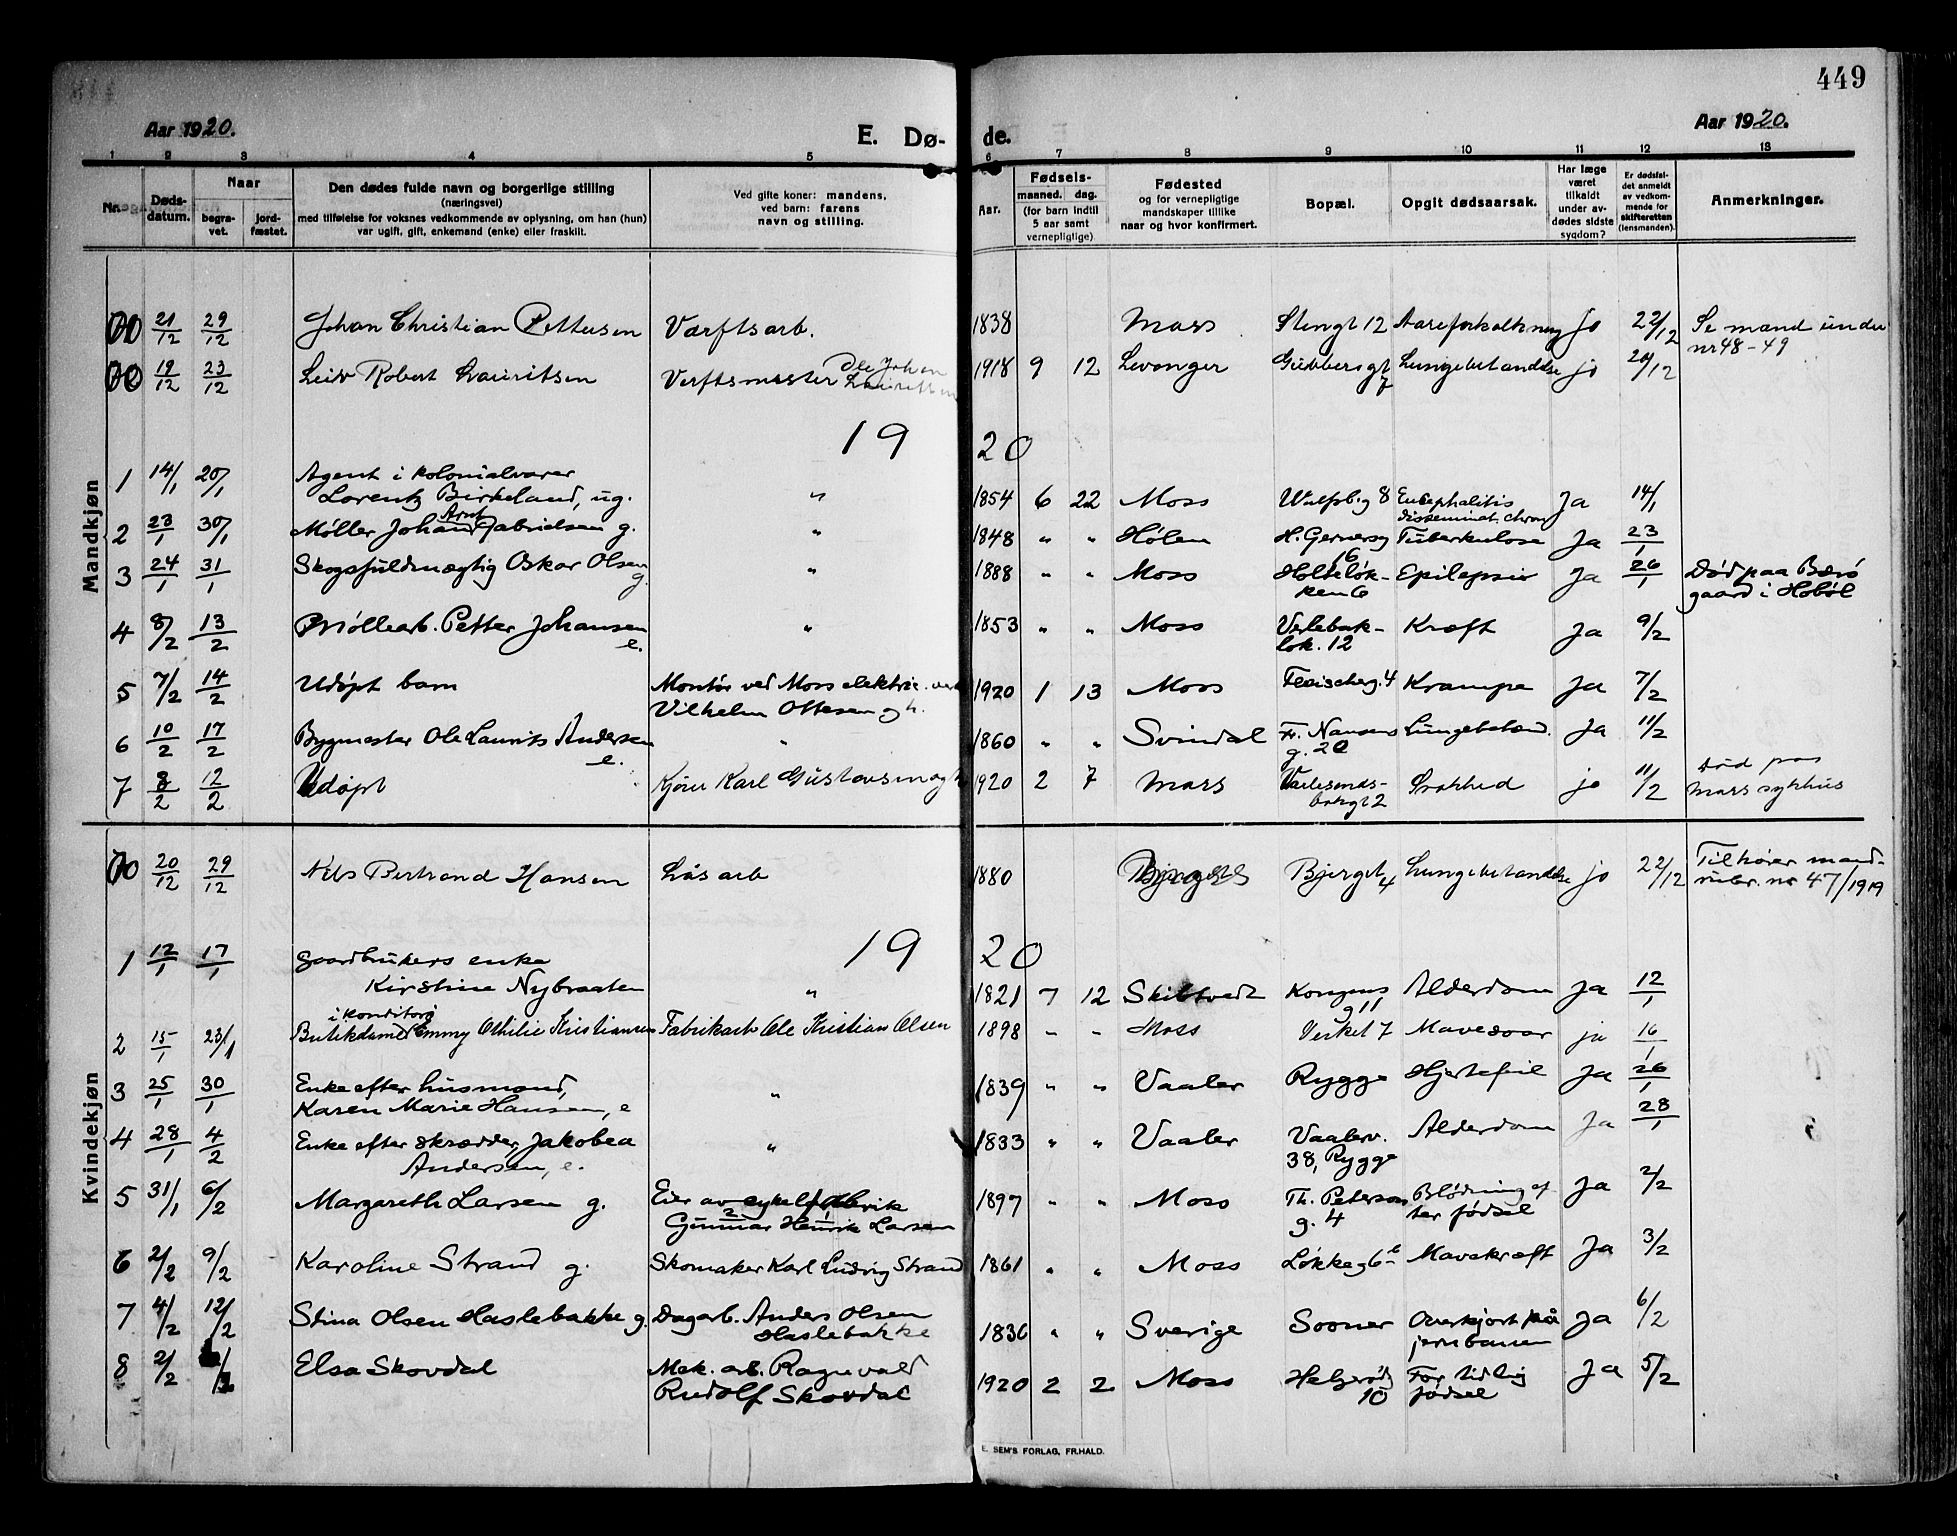 449
Aar 1920.
E. Dø-
de.
Aar 1920.
1 2 3 4 5 6 7 8 9 10 11 12 13
Nr.
Døds-
datum.
Naar
begra-
vet.
jord-
fæstet.
Den dødes fulde navn og borgerlige stilling
(næringsvei)
med tilføielse for voksnes vedkommende av oplysning, om han (hun)
var ugift, gift, enkemand (enke) eller fraskilt.
Ved gifte koner: mandens,
ved barn: farens
navn og stilling.
Aar.
Fødsels-
maaned. dag.
(for barn indtil
5 aar samt
vernepligtige)
Fødested
og for vernepligtige
mandskaper tillike
naar og hvor konfirmert.
Bopæl.
Opgit dødsaarsak.
Har læge
været
tilkaldt
under av-
dødes sidste
sygdom?
Er dødsfal-
det anmeldt
av vedkom-
mende for
skifteretten
(lensmanden).
Anmerkninger.
Mandkjøn
21/12 29/12 Johan Christian Pettersen Værftsarb. 1838 Moss Stengt 12 Aareforkalkning jo 22/12 Se mand under
nr 48-49
19/12 23/12 Leiv Robert Lauritsen Verftsmester Ole Johan
Lauritsen 1918 9 12 Levanger Gudbergt
7 Lungebetændelse jo 20/12
1920
1 14/1 20/1 Agent i kolonialvarer
Lorentz Birkeland, ug. " 1854 6 22 Moss Wulfsbg 8 Encephalitis
disseminat. chron Ja 14/1
2 23/1 30/1 Møller Johan Arnt Gabrielsen g. " 1848 " " Hølen H. Gernersg
16 Tuberkulose Ja 23/1
3 24/1 31/1 Skogsfuldmægtig Oskar Olsen
g. " 1888 " " Moss Holteløk-
ken 6 Epilepsie Ja 26/1 Død paa Bærø
gaard i Hobøl
4 8/2 13/2 Møllearb. Petter Johansen
e. " 1853 " " Moss Verlebak-
løk. 12 Kræft Ja 9/2
5 7/2 14/2 Udøpt barn Montør ved Moss elektric. verk
Vilhelm Ottesen g h. 1920 1 13 Moss Fleischerg. 4 Krampe Ja 7/2
6 10/2 17/2 Bygmester Ole Laurits Andersen
e. " 1860 " " Svindal Fr. Nansens
g. 20 Lungebetænd. Ja 11/2
7 8/2 12/2 Udøpt Kjører Karl Gustavsen 1920 2 7 Moss Varlesands-
bakgt 2 Svakhed jo 11/2 Død paa
Moss sykhus
Kvindekjøn
20/12 29/12 Nils Bertrand Hansen Løsarb 1880 Bjergt
4 Lungebetændelse jo 22/12 Tilhører mand-
rubr. nr 47/1919
1920
1 12/1 17/1 Gaardbrukers enke
Kirstine Nybraaten " 1821 7 12 Skibtvedt Kongens
g 11 Alderdom Ja 12/1
2 15/1 23/1 Butikdame i konditori Emmy Othilie Kristiansen Fabrikarb Ole Kristian Olsen 1898 " " Moss Verket 7 Mavesaar ja 16/1
3 25/1 30/1 Enke efter husmand,
Karen Marie Hansen, e " 1839 " " Vaaler Rygge Hjertefeil Ja 26/1
4 28/1 4/2 Enke efter skrædder, Jakobea
Andersen, e. " 1833 " " Vaaler Vaalerv.
38, Rygge Alderdom Ja 28/1
5 31/1 6/2 Margareth Larsen g. Eier av cykelfabrik
Gunnar Henrik Larsen 1897 " " Moss Th. Peterson
g. 4 Blødning ef
ter fødsel Ja 2/2
6 2/2 9/2 Karoline Strand g. Skomaker Karl Ludvig Strand 1861 " " Moss Løkkeg 6 Mavekræft Ja 3/2
7 4/2 12/2 Stina Olsen Haslebakke g. Dagarb. Anders Olsen
Haslebakke 1836 " " Sverige Sooner Overkjørt på
jernbanen Ja 6/2
8 2/2 Elsa Skovdal Mek. arb. Ragnvald
Rudolf Skovdal 1920 2 2 Moss Helgerødg
10 For tidlig
fødsel Ja 5/2
E. SEM'S FORLAG, FR.HALD.